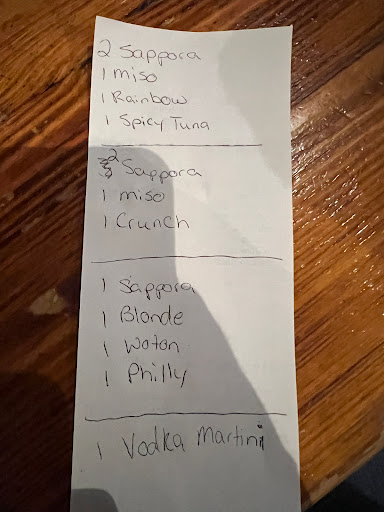 2 Sappora
1 miso
1 Rainbow
1 Spicy Tuna
2 Sappora
1 miso
1 Crunch
1 Sappora
1 Blonde
1 Woton
1 Philly
1 Vodka Martini